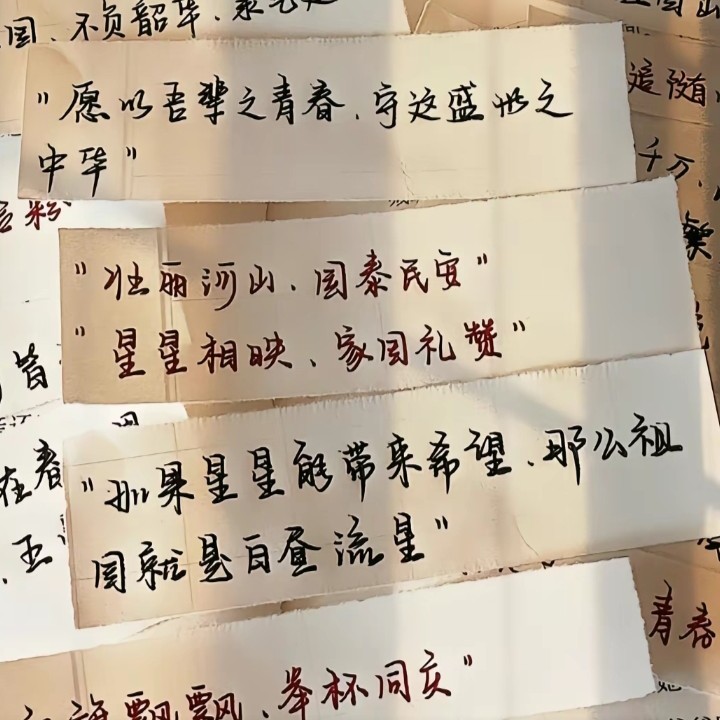 国、不负韶华、
"愿以吾辈之青春、守这盛世之
中华"
追随
千万、
"壮丽河山、国泰民安"
"星星相映、家国礼赞"
皆
在春
"如果星星能带来希望、那么祖
国就是白昼流星"
青春
飘飘、举杯同庆"